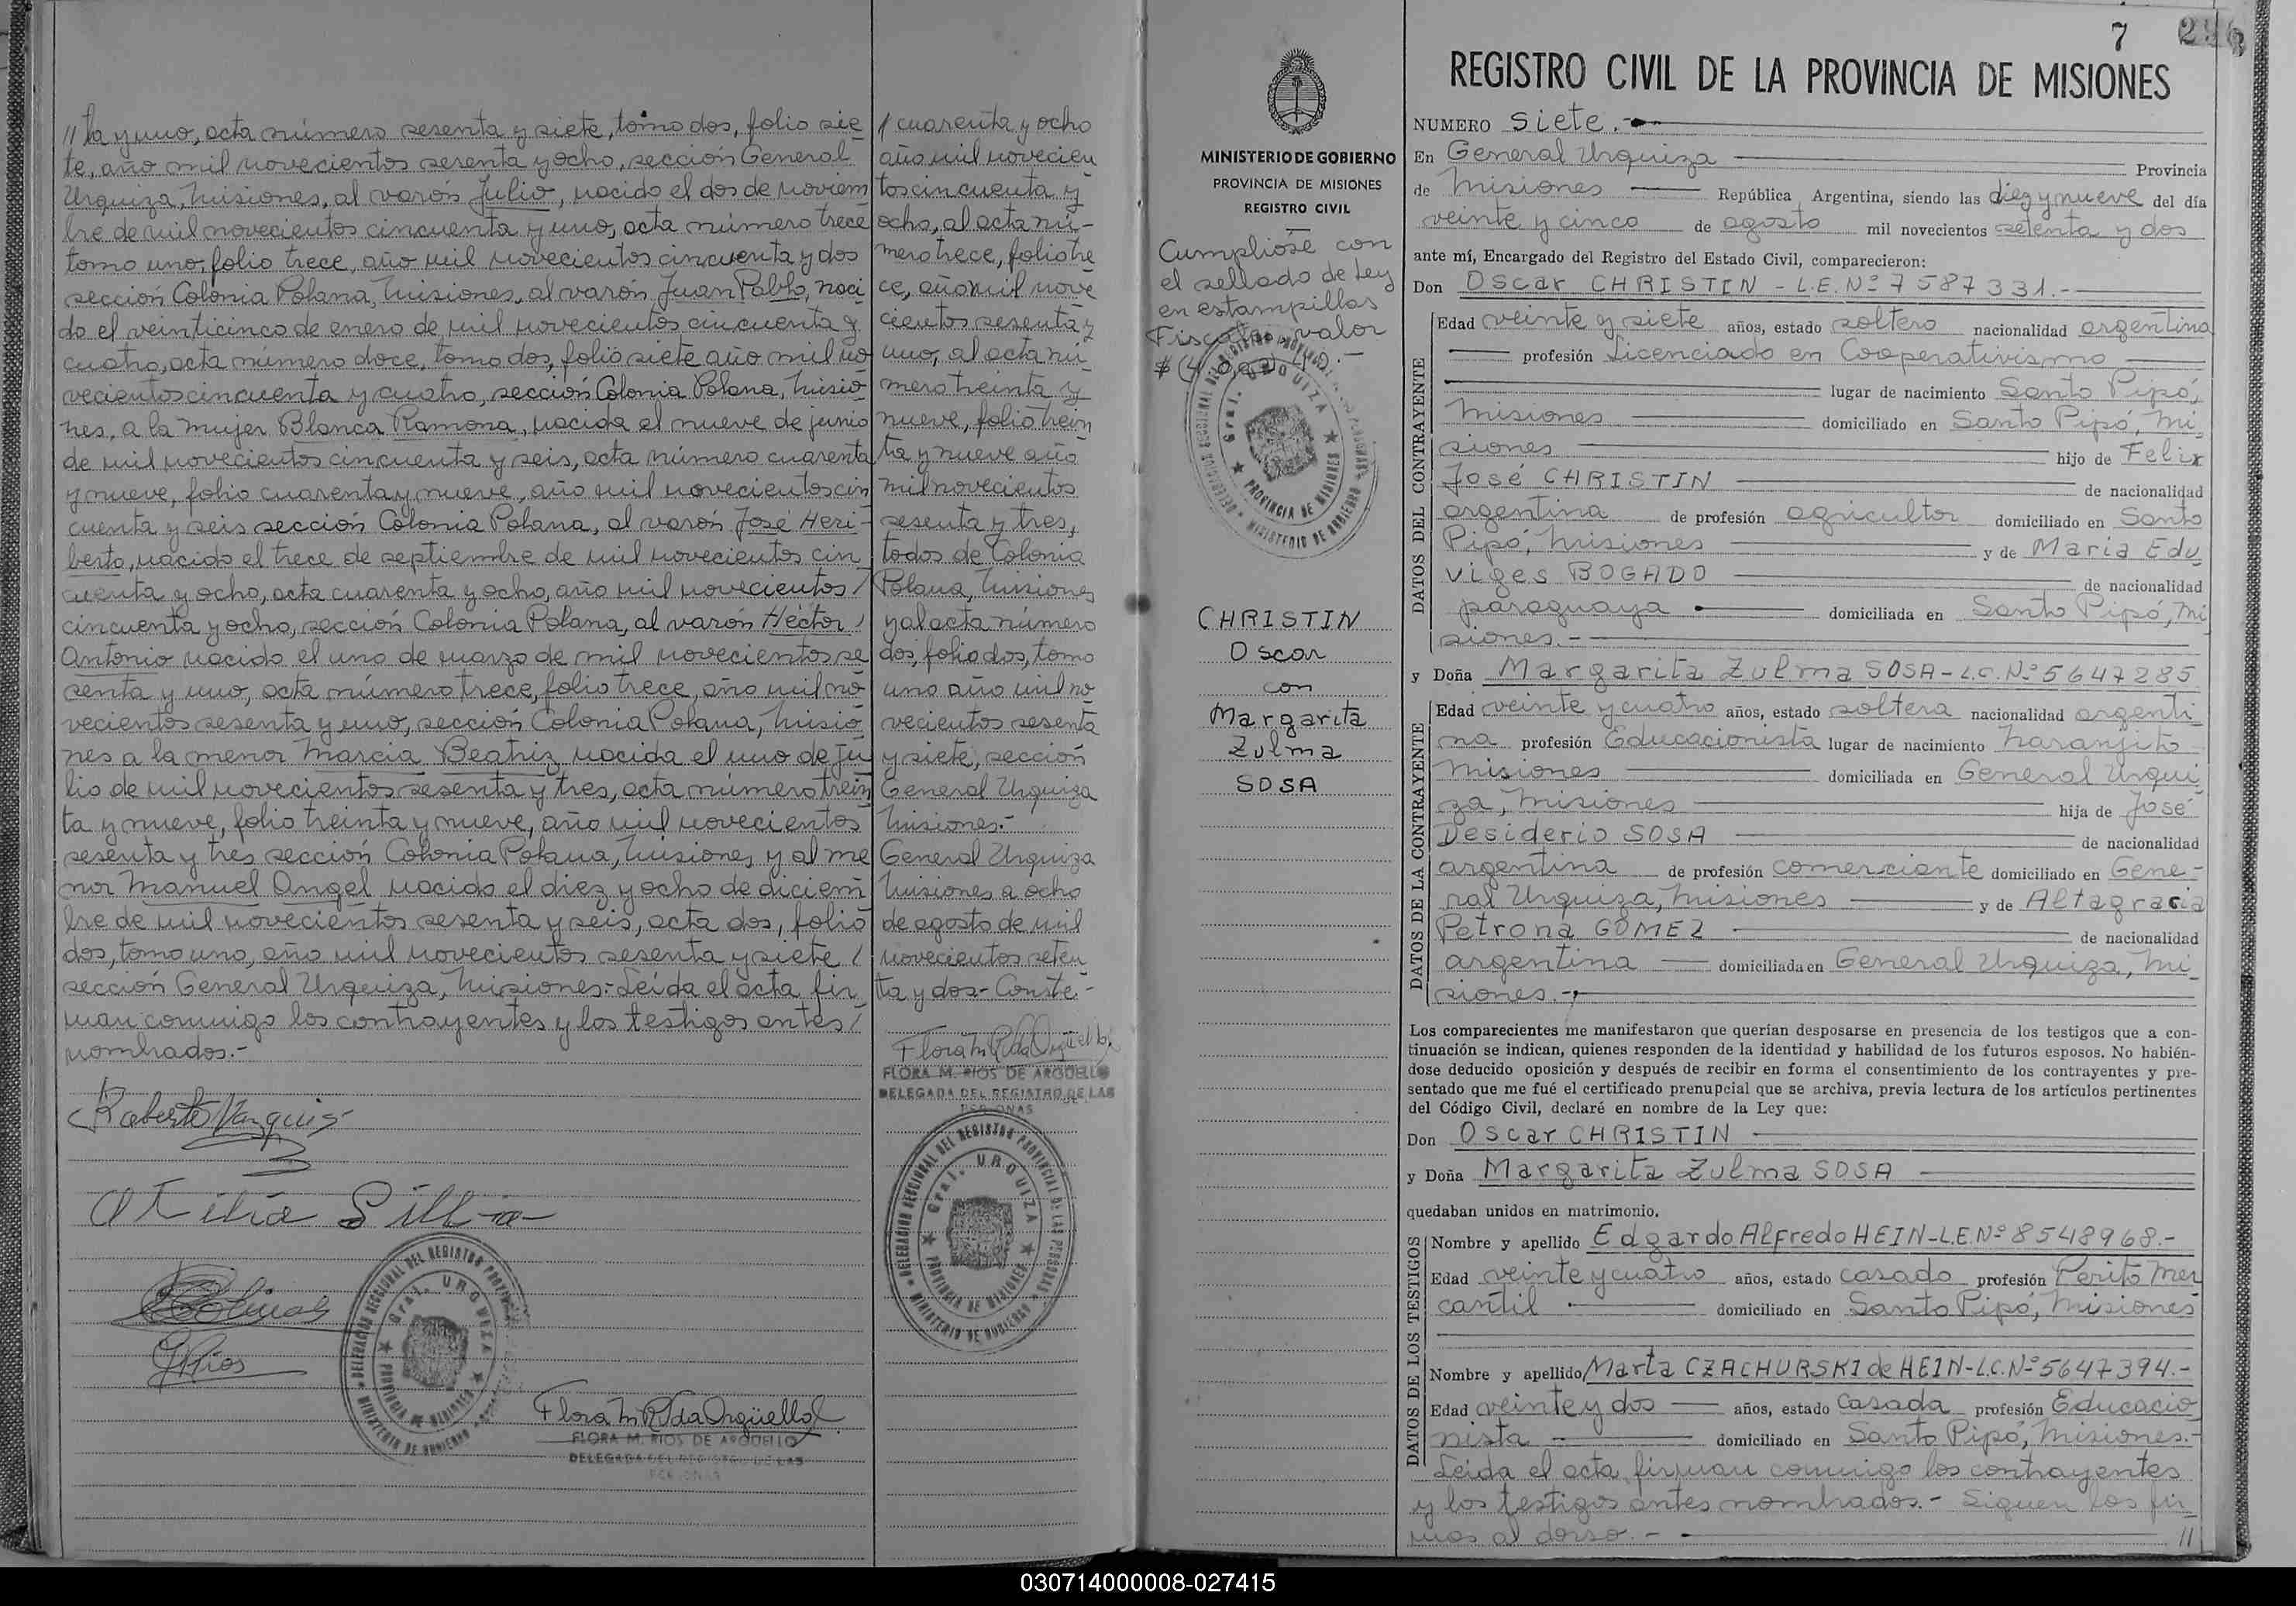 // ta y uno, acta número sesenta y siete, tomo dos, folio sie
te, año mil novecientos sesenta y ocho, sección General
Urquiza, Misiones, al varón Julio, nacido el dos de noviem
bre de mil novecientos cincuenta y uno, acta número trece
tomo uno, folio trece, año mil novecientos cincuenta y dos
sección Colonia Polana, Misiones, al varón Juan Pablo, naci
do el veinticinco de enero de mil novecientos cincuenta y
cuatro, acta número doce, tomo dos, folio siete año mil no
vecientos cincuenta y cuatro, sección Colonia Polana, Misio
nes, a la mujer Blanca Ramona, nacida el nueve de junio
de mil novecientos cincuenta y seis, acta número cuarenta
y nueve, folio cuarenta y nueve, año mil novecientos cin
cuenta y seis sección Colonia Polana, al varón José Heri-
berto, nacido el trece de septiembre de mil novecientos cin
cuenta y ocho, acta cuarenta y ocho, año mil novecientos /
cincuenta y ocho, sección Colonia Polana, al varón Héctor /
Antonio nacido el uno de marzo de mil novecientos se
senta y uno, acta número trece, folio trece, año mil no
vecientos sesenta y uno, sección Colonia Polana, Misio
nes a la menor Marcia Beatriz nacida el uno de ju
lio de mil novecientos sesenta y tres, acta número trein
ta y nueve, folio treinta y nueve, año mil novecientos
sesenta y tres sección Colonia Polana, Misiones y al me
nor Manuel Angel nacido el diez y ocho de diciem
bre de mil novecientos sesenta y seis, acta dos, folio
dos, tomo uno, año mil novecientos sesenta y siete /
sección General Urquiza, Misiones.- Leída el acta fir
man conmigo los contrayentes y los testigos antes /
nombrados.-
/ cuarenta y ocho
año mil novecien
tos cincuenta y
ocho, al acta nú-
mero trece, folio tre
ce, año mil nove
cientos sesenta y
uno, al acta nú-
mero treinta y
nueve, folio trein
ta y nueve año
mil novecientos
sesenta y tres,
todos de Colonia
Polana, Misiones
y al acta número
dos, folio dos, tomo
uno año mil no
vecientos sesenta
y siete, sección
General Urquiza
Misiones.-
General Urquiza
Misiones a ocho
de agosto de mil
novecientos seten
ta y dos- Conste.-
FLORA M. RIOS DE ARGÜELLO
DELEGADA DEL REGISTRO DE LAS
PERSONAS
DELEGACION SECCIONAL DEL REGISTRO PROVINCIAL DE LAS PERSONAS
Gral. URQUIZA
PROVINCIA DE MISIONES
MINISTERIO DE GOBIERNO
Roberto Vargas
Otilia Silva
GRios
DELEGACION SECCIONAL DEL REGISTRO
Gral. URQUIZA
PROVINCIA DE MISIONES
MINISTERIO DE GOBIERNO
Flora M R de Argüello
FLORA M. RIOS DE ARGUELLO
DELEGADA DEL REGISTRO DE LAS
PERSONAS
MINISTERIO DE GOBIERNO
PROVINCIA DE MISIONES
REGISTRO CIVIL
Cumplióse con
el sellado de Ley
en estampillas
Fiscales valor
Gral. URQUIZA
PROVINCIA DE MISIONES
MINISTERIO DE GOBIERNO
CHRISTIN
Oscar
con
Margarita
Zulma
SOSA
7
REGISTRO CIVIL DE LA PROVINCIA DE MISIONES
NUMERO Siete.-
En General Urquiza Provincia
de Misiones República Argentina, siendo las diez y nueve del día
veinte y cinco de agosto mil novecientos setenta y dos
ante mí, Encargado del Registro del Estado Civil, comparecieron:
Don Oscar CHRISTIN - L.E.Nº 7587331.-
DATOS DEL CONTRAYENTE
Edad veinte y siete años, estado soltero nacionalidad argentina
profesión Licenciado en Cooperativismo
lugar de nacimiento Santo Pipó,
Misiones domiciliado en Santo Pipó, Mi
siones hijo de Felix
José CHRISTIN de nacionalidad
argentina de profesión agricultor domiciliado en Santo
Pipó, Misiones y de María Edu
viges BOGADO de nacionalidad
paraguaya domiciliada en Santo Pipó, Mi
siones.-
y Doña Margarita Zulma SOSA - L.C. Nº 5647285
DATOS DE LA CONTRAYENTE
Edad veinte y cuatro años, estado soltera nacionalidad argenti
na profesión Educacionista lugar de nacimiento Naranjito
Misiones domiciliada en General Urqui
za, Misiones hija de José
Desiderio SOSA de nacionalidad
argentina de profesión comerciante domiciliado en Gene-
ral Urquiza, Misiones y de Altagracia
Petrona GOMEZ de nacionalidad
argentina domiciliada en General Urquiza, Mi
siones.-
Los comparecientes me manifestaron que querían desposarse en presencia de los testigos que a con-
tinuación se indican, quienes responden de la identidad y habilidad de los futuros esposos. No habién-
dose deducido oposición y después de recibir en forma el consentimiento de los contrayentes y pre-
sentado que me fué el certificado prenupcial que se archiva, previa lectura de los artículos pertinentes
del Código Civil, declaré en nombre de la Ley que:
Don Oscar CHRISTIN
y Doña Margarita Zulma SOSA
quedaban unidos en matrimonio.
DATOS DE LOS TESTIGOS
Nombre y apellido Edgardo Alfredo HEIN-L.E.Nº 8548968.-
Edad veinte y cuatro años, estado casado profesión Perito Mer
cantil domiciliado en Santo Pipó, Misiones
Nombre y apellido Marta CZACHURSKI de HEIN-L.C.Nº 5647394.-
Edad veinte y dos años, estado Casada profesión Educacio
nista domiciliado en Santo Pipó, Misiones.-
Leída el acta firman conmigo los contrayentes
y los testigos antes nombrados.- Siguen las fir
mas al dorso.- //
030714000008-027415